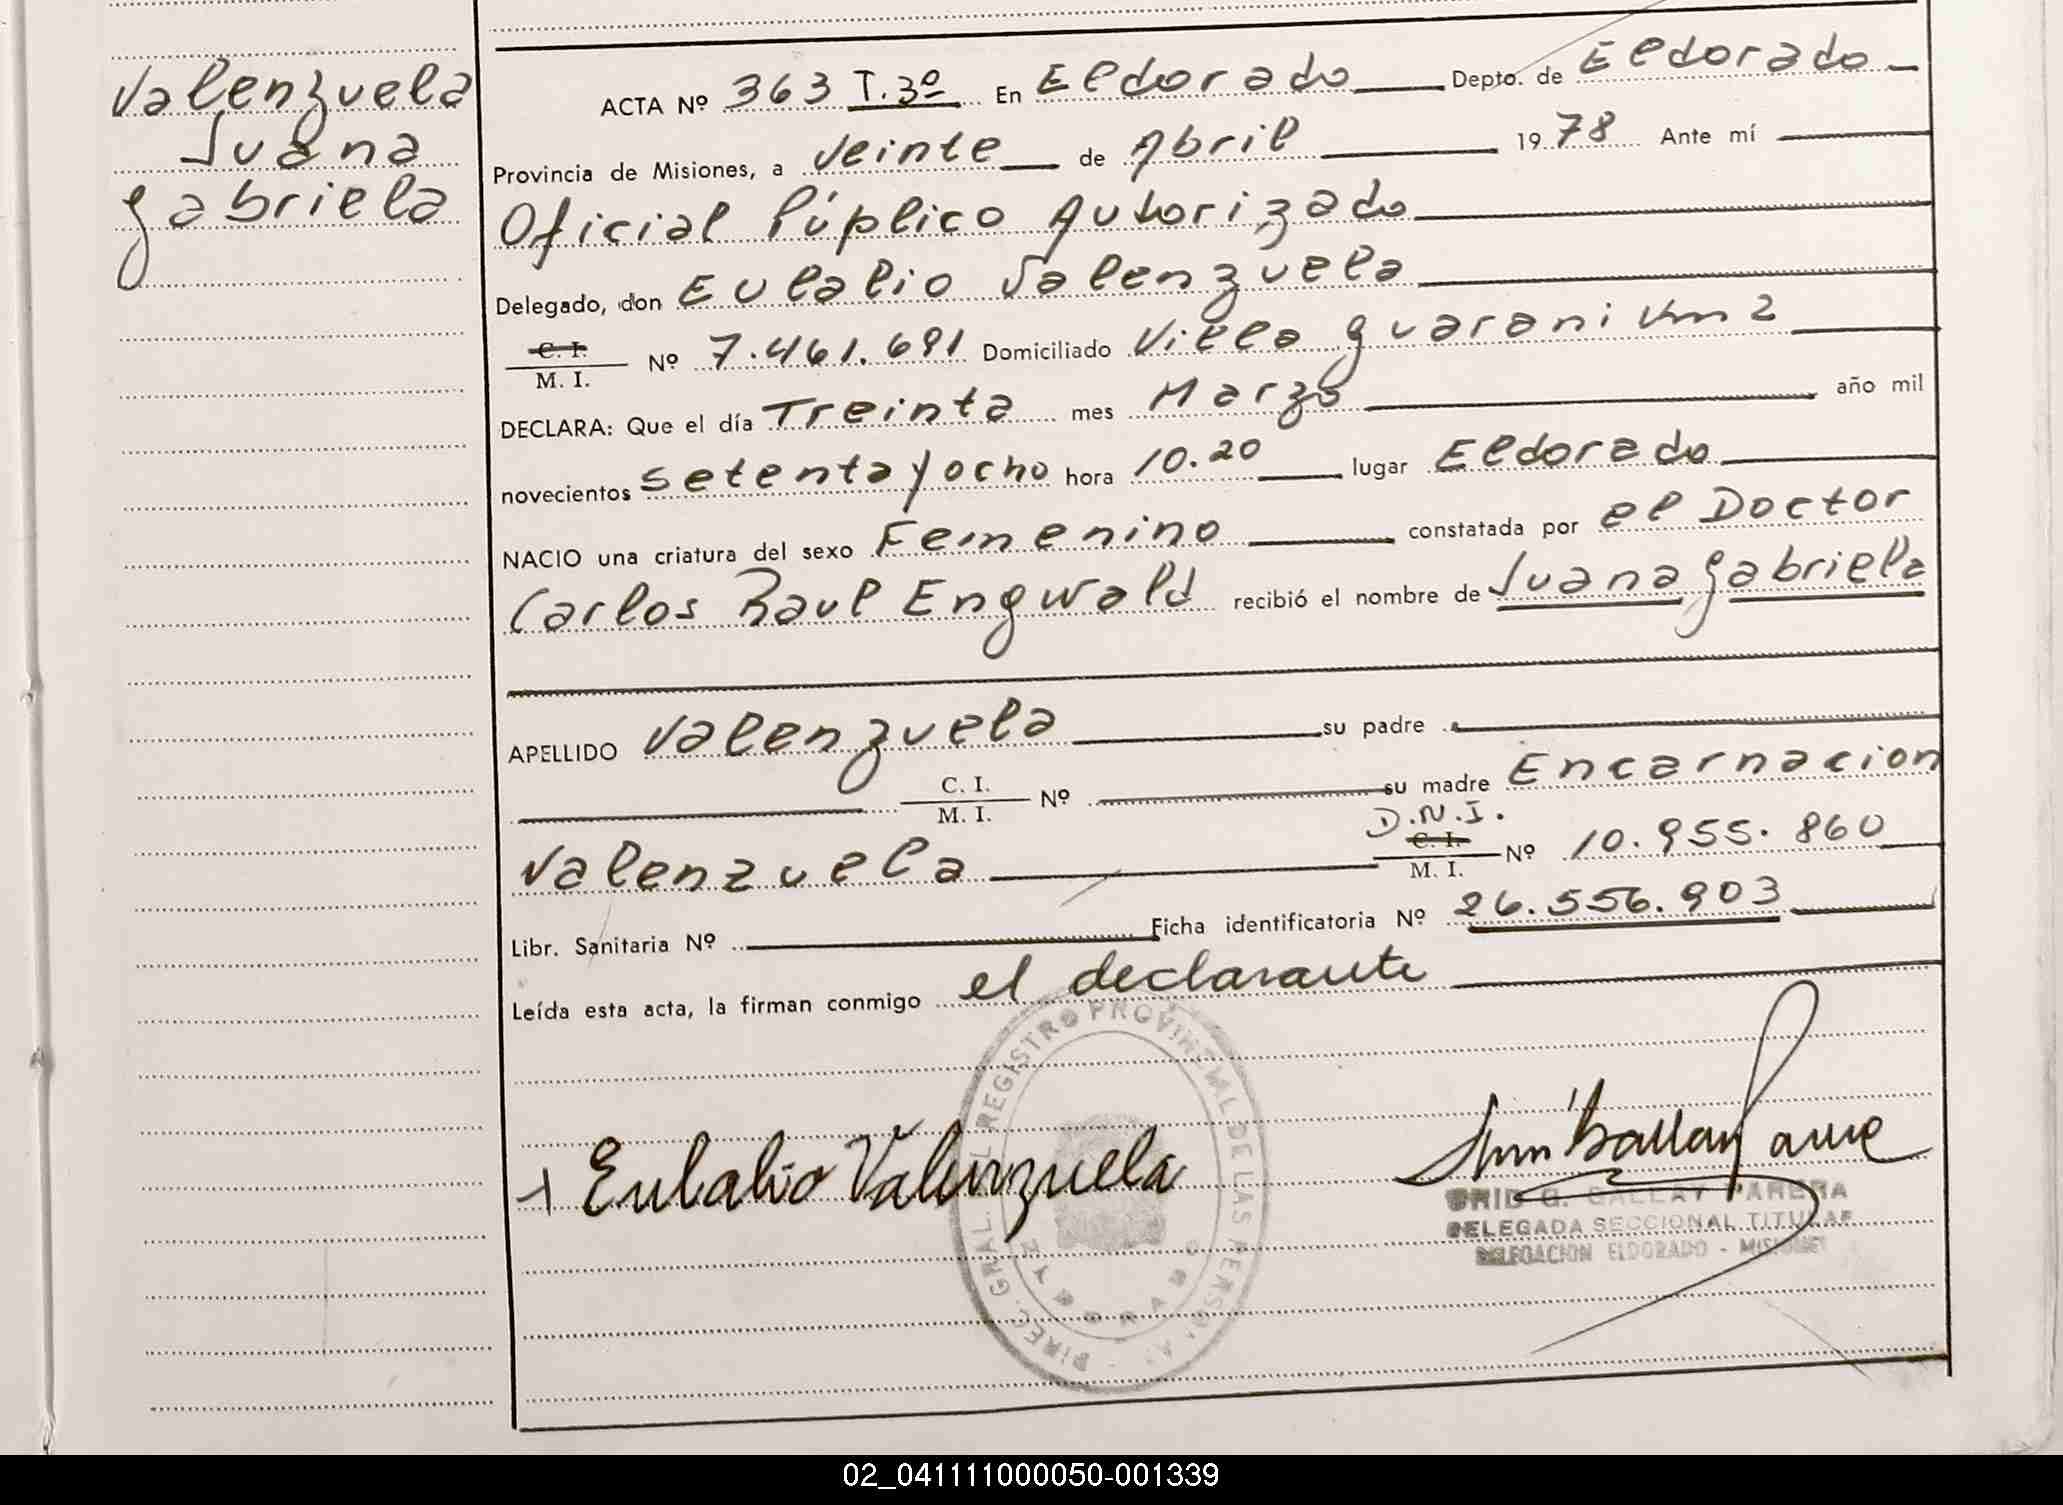 Valenzuela
Juana
Gabriela
ACTA Nº 363 T.3º En Eldorado Depto. de Eldorado
Provincia de Misiones, a Veinte de Abril 1978 Ante mí
Oficial Púplico Autorizado
Delegado, don Eulalio Valenzuela
C. I.
M. I. Nº 7.461.691 Domiciliado Villa Guarani Km 2
DECLARA: Que el día Treinta mes Marzo año mil
novecientos setenta y ocho hora 10.20 lugar Eldorado
NACIO una criatura del sexo Femenino constatada por el Doctor
Carlos Raul Engwald recibió el nombre de Juana Gabriela
APELLIDO Valenzuela su padre
C. I.
M. I. Nº su madre Encarnacion
D.N.I.
Valenzuela C. I.
M. I. Nº 10.955.860
Libr. Sanitaria Nº Ficha identificatoria Nº 26.556.903
Leída esta acta, la firman conmigo el declarante
DIREC. GRAL. DEL REGISTRO PROVINCIAL DE LAS PERSONAS
ELDORADO
Eulalio Valenzuela
G. BALLAY PARERA
DELEGADA SECCIONAL TITULAR
DELEGACION ELDORADO - MISIONES
02_041111000050-001339